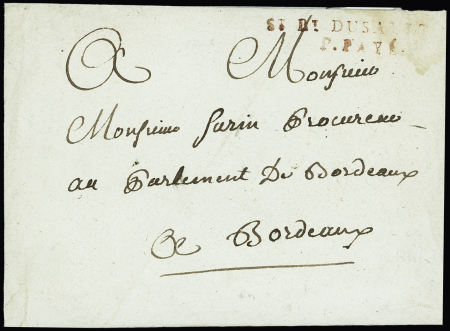 St Dt DUSA
P. PAYÉ
A Monsieur
Monsieur Surin Procureur
au Parlement De Bordeaux
A Bordeaux